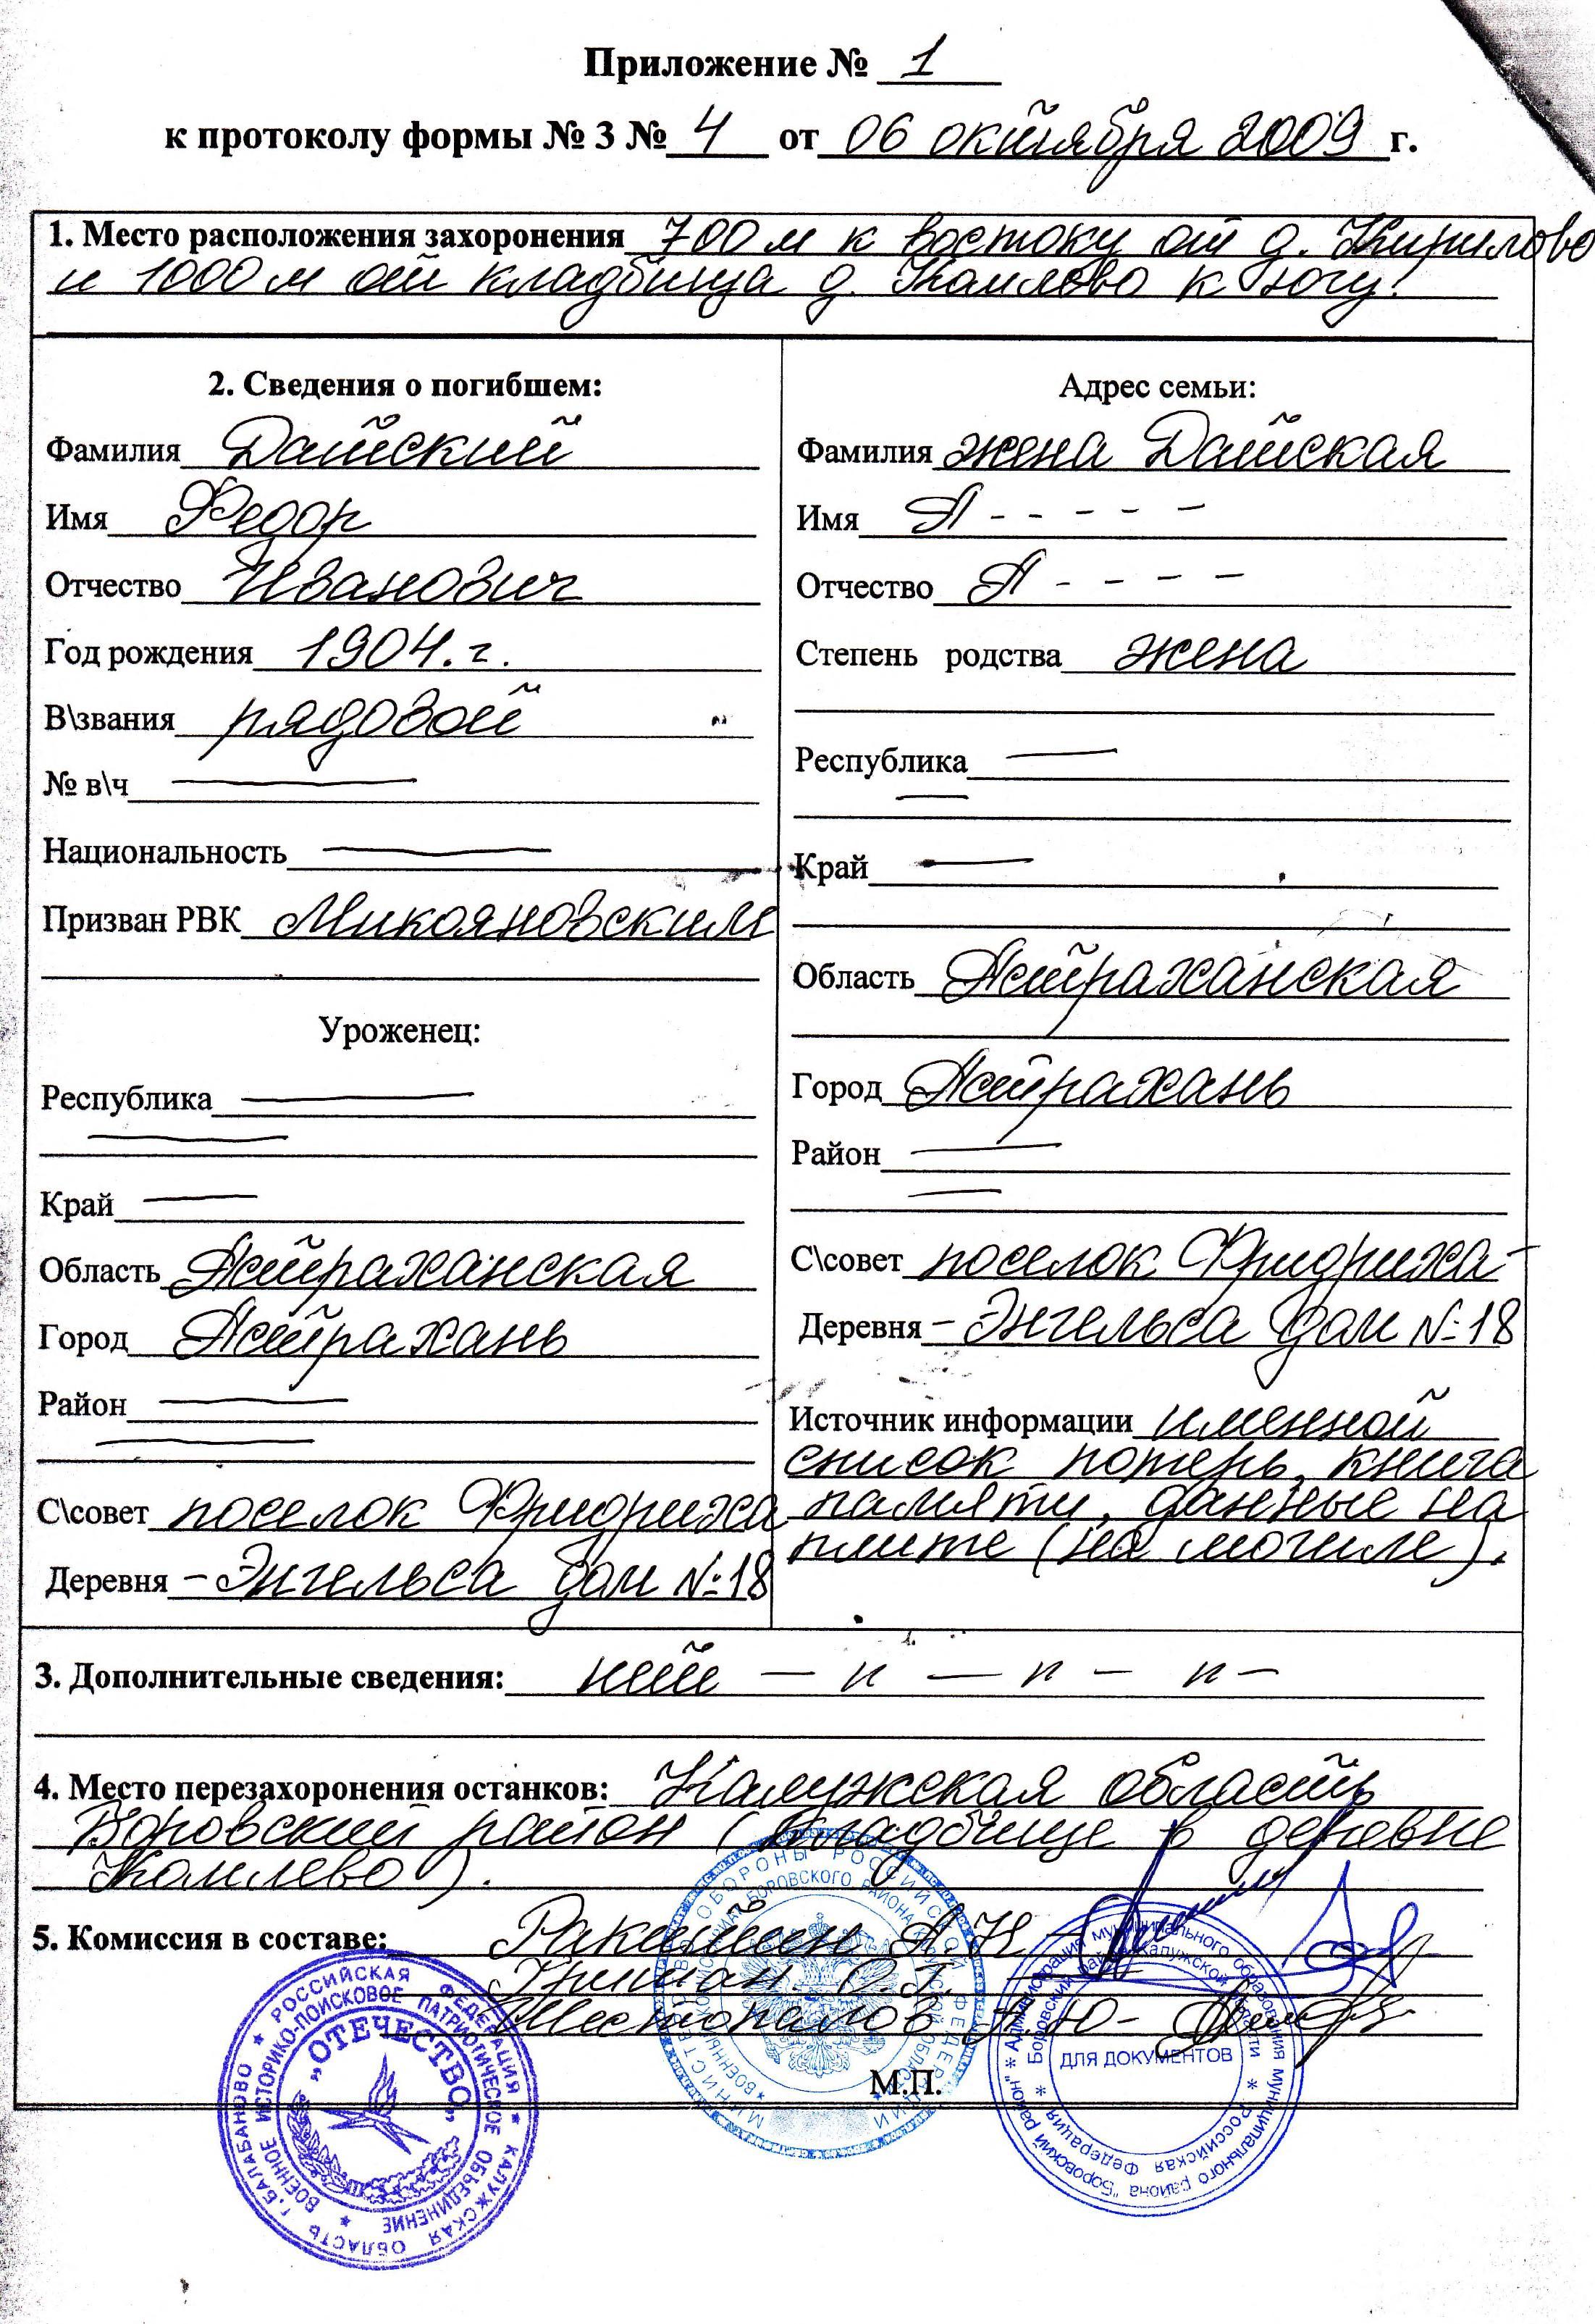 Приложение № 1
к протоколу формы № 3 № 4 от 06 октября 2009 г.
1. Место расположения захоронения 700 м к востоку от д. Кирилово
и 1000 м от кладбища д. Комлево к югу.
2. Сведения о погибшем:
Фамилия Датский
Имя Федор
Отчество Иванович
Год рождения 1904. г.
В\звания рядовой
№ в\ч —
Национальность —
Призван РВК Микояновским
Уроженец:
Республика —
Край —
Область Астраханская
Город Астрахань
Район —
С\совет поселок Фридриха
Деревня - Энгельса дом № 18
Адрес семьи:
Фамилия жена Датская
Имя А - - - - -
Отчество А - - - -
Степень родства жена
Республика —
Край —
Область Астраханская
Город Астрахань
Район —
С\совет поселок Фридриха -
Деревня - Энгельса дом № 18
Источник информации именной
список потерь, книга
памяти, данные на
плите (на могиле).
3. Дополнительные сведения: нет — н — н — н —
4. Место перезахоронения останков: Калужская область
Боровский район (кладбище в деревне
Комлево).
5. Комиссия в составе: Ракитин А.Н
О.Г.
Шестопалов А.Ю-
М.П.
РОССИЙСКАЯ ФЕДЕРАЦИЯ * КАЛУЖСКАЯ ОБЛАСТЬ Г.БАЛАБАНОВО *
ВОЕННОЕ ИСТОРИКО-ПОИСКОВОЕ ПАТРИОТИЧЕСКОЕ ОБЪЕДИНЕНИЕ *
„ОТЕЧЕСТВО„
МИНИСТЕРСТВО ОБОРОНЫ РОССИЙСКОЙ ФЕДЕРАЦИИ
ВОЕННЫЙ КОМИССАРИАТ БОРОВСКОГО РАЙОНА КАЛУЖСКОЙ ОБЛАСТИ
* Администрация муниципального образования муниципального района "Боровский район"
* Боровский район Калужской области * Российская Федерация
ДЛЯ ДОКУМЕНТОВ